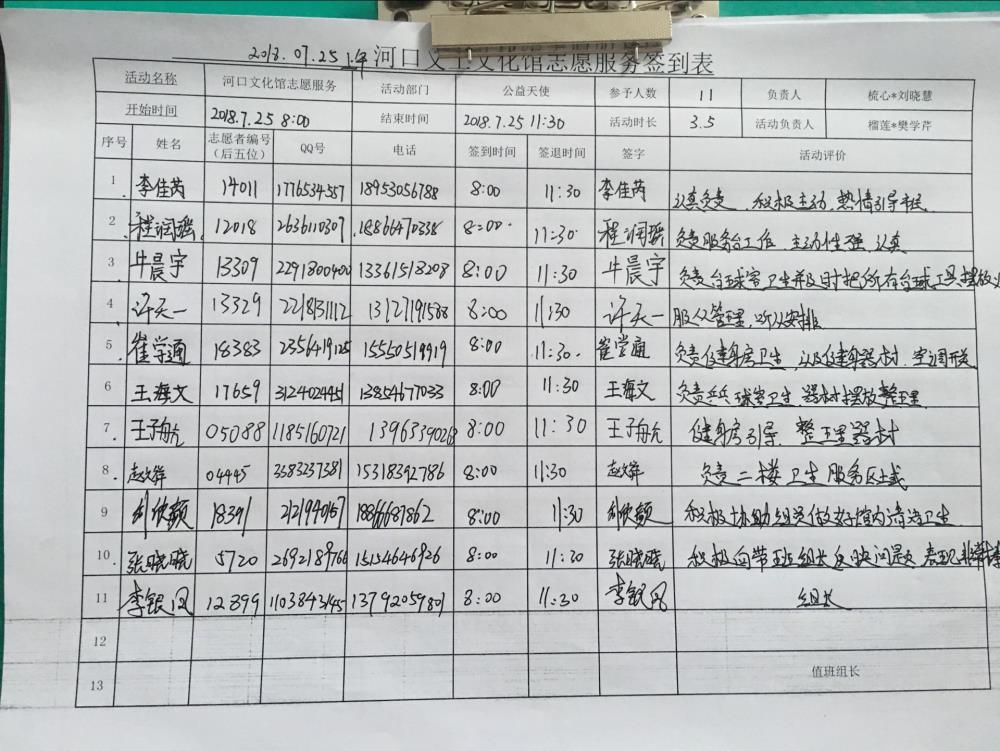 2018.07.25上午 河口义工文化馆志愿服务签到表
活动名称 河口文化馆志愿服务 活动部门 公益天使 参予人数 11 负责人 梳心*刘晓慧
开始时间 2018.7.25 8:00 结束时间 2018.7.25 11:30 活动时长 3.5 活动负责人 榴莲*樊学芹
序号 姓名 志愿者编号（后五位） QQ号 电话 签到时间 签退时间 签字 活动评价
1 李佳芮 14011 1776534557 18953056788 8:00 11:30 李佳芮 认真负责，积极主动，热情引导市民
2 程润瑶 12018 2636110307 18866470338 8:00 11:30 程润瑶 负责服务台工作 主动性强，认真
3 牛晨宇 13309 2291800400 13361518208 8:00 11:30 牛晨宇 负责台球室卫生并及时把所有台球工具摆放
4 许天一 13329 2218131112 13127191588 8:00 11:30 许天一 服从管理，听从安排
5 崔学通 18383 2356419125 15550519919 8:00 11:30 崔学通 负责健身房卫生，以及健身器材、空调开关
6 王海文 17659 3124024451 13854677033 8:00 11:30 王海文 负责乒乓球室卫生 器材摆放整理
7 王子航 05088 1185160721 1396339026 8:00 11:30 王子航 健身房引导，整理器材
8 赵文锋 04445 3383237381 15318392786 8:00 11:30 赵文锋 负责二楼卫生服务区域
9 18391 2121940157 18866687862 8:00 11:30 积极协助组长做好馆内清洁卫生
10 张晓晓 5720 2692189766 15154646926 8:00 11:30 张晓晓 积极向带班组长反映问题 表现非常棒
11 李银凤 12899 1103843145 13792059801 8:00 11:30 李银凤 组长
12
13 值班组长